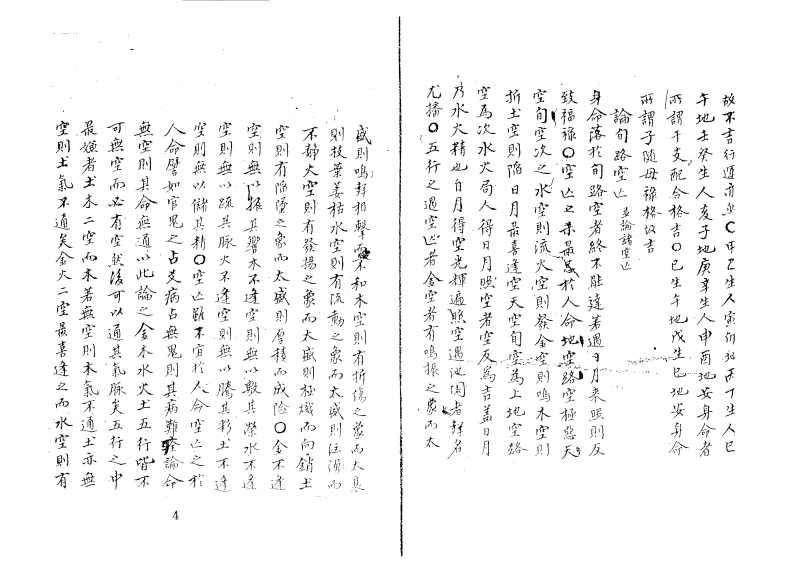 故不吉行運亦然〇甲乙生人寅卯地丙丁生人巳
午地壬癸生人亥子地庚辛生人申酉地安身命者
所謂干支配合格吉〇巳生午地戊生巳地安身命
所謂子隨母祿格故吉
論旬路空亡 並論諸空亡
身命落於旬路空者終不能達若遇日月來照則反
致福祿〇空亡之來最忌於人命地空路空極惡天
空旬空次之水空則流火空則發金空則鳴木空則
折土空則陷日月最喜逢空天空旬空為上地空路
空為次水火局人得日月照空者空反為吉蓋日月
乃水火精也日月得空光輝遍照空遇池闲者鮮名
尤播〇五行之遇空亡者金空者有鳴振之象而太
盛則鳴鮮相擊而不和木空則有折傷之象而太衰
則枝葉萎枯水空則有流動之象而太盛則汪濱而
不靜火空則有發揚之象而太盛則極熾而向銷土
空則有陷燙之象而太盛則厚積而成險〇金不逢
空則無以振其響木不逢空則無以聚其榮水不逢
空則無以疏其脉火不逢空則無以騰其彩土不逢
空則無以儲其精〇空亡雖不宜於人命空亡之於
人命譬如官鬼之占爻病占無鬼則其病難論命
無空則其命無通以此論之金木水火土五行皆不
可無空而必有空然後可以通其氣脉矣五行之中
最嫌者土木二空而木若無空則木氣不通土亦無
空則土氣不通矣金火二空最喜逢之而水空則有
4